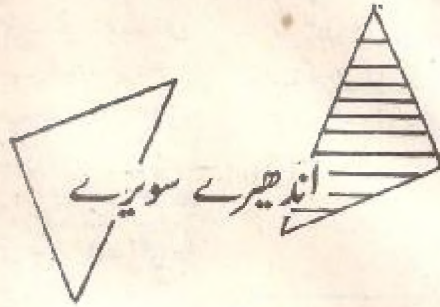 اندھیرے سویرے